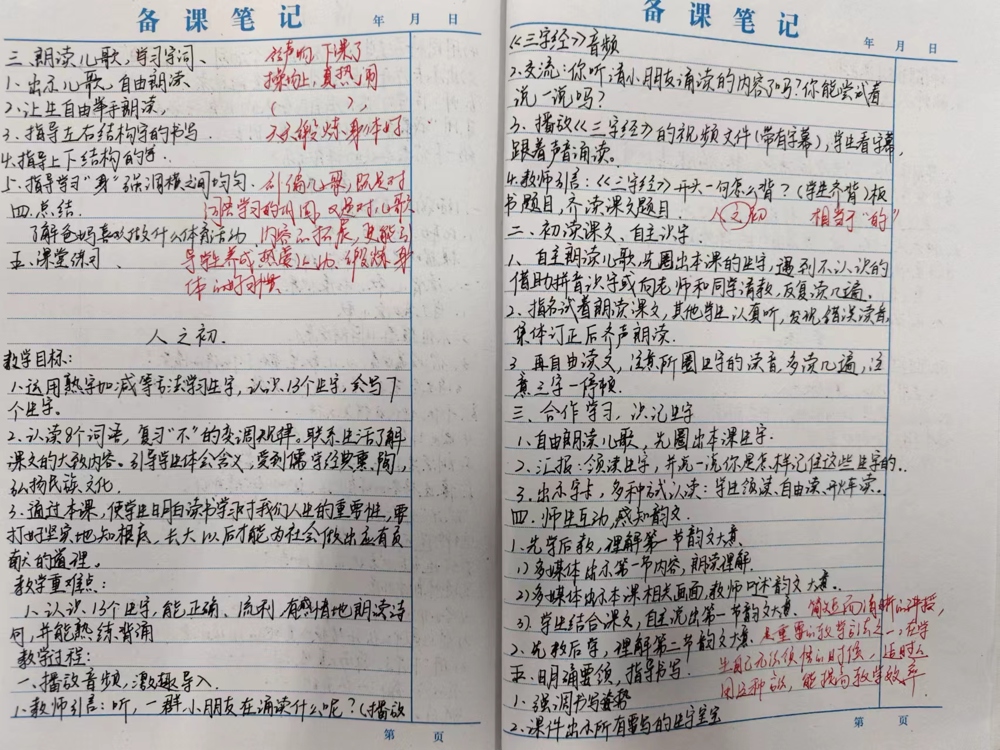 备课笔记
年 月 日
三、朗读儿歌，学习字词、
1、出示儿歌，自由朗读
2、让生自由举手朗读，
3、指导左右结构字的书写
4、指导上下结构的字.
5、指导学习"身"强调横之间均匀.
四.总结.
了解爸妈喜欢做什么体育活动
五、课堂练习.
铃声响，下课了
操场上，真热闹
（　　　　），
天天锻炼身体好
创编儿歌，既是对
词语学习的巩固，又是对儿歌
内容的拓展，更能引
导学生养成热爱运动、锻炼身
体的好习惯
人之初.
教学目标：
1.运用熟字加减等方法学习生字，认识13个生字，会写7
个生字。
2、认读8个词语，复习"不"的变调规律。联系生活了解
课文的大致内容。引导学生体会含义，受到儒学经典熏陶，
弘扬民族文化.
3.通过本课，使学生明白读书学习对我们人生的重要性，要
打好坚实地知根底，长大以后才能为社会做出应有贡
献的道理。
教学重难点：
1、认识13个生字，能正确、流利、有感情地朗读诗
句，并能熟练背诵
教学过程：
一、播放音频，激趣导入.
1、教师引言：听，一群小朋友在诵读什么呢？（播放
第　页
备课笔记
年 月 日
《三字经》音频
2.交流：你听清小朋友诵读的内容了吗？你能尝试着
说一说吗？
3、播放《三字经》的视频文件（带有字幕），学生看字幕，
跟着声音诵读。
4.教师引言：《三字经》开头一句怎么背？（学生齐背）板
书题目，齐读课文题目.
人之初　相当于"的"
二、初读课文、自主识字.
1、自主朗读儿歌，先圈出本课的生字，遇到不认识的
借助拼音识字或向老师和同学请教，反复读几遍。
2、指名试着朗读课文，其他学生认真听，发现错误读音，
集体订正后齐声朗读.
3.再自由读文，注意所圈生字的读音，多读几遍，注
意三字一停顿.
三、合作学习，识记生字
1、自由朗读儿歌，先圈出本课生字.
2、汇报：领读生字，并说一说你是怎样记住这些生字的..
3、出示字卡，多种方式认读：学生领读、自由读、开火车读..
四.师生互动，感知韵文.
1、先学后教，理解第一节韵文大意.
1）多媒体出示第一节内容，朗读理解.
2）多媒体出示本课相关画面，教师叶术韵文大意.
3）学生结合课文，自主说出第一节韵文大意.
2、先教后学，理解第二节韵文大意.
简洁而清晰的讲授，
是重要的教学方法之一，在学
生自己无法领悟的时候，适时运
用这种方法，能提高教学效率.
五、明确要领，指导书写.
1、强调书写姿势
2、课件出示所有要写的生字
第　页